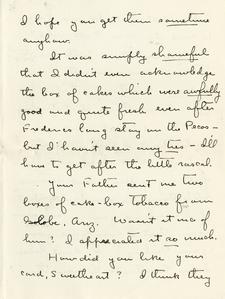 I hope you get them sometime
anyhow.
It was simply shameful
that I didn't even acknowledge
the box of cakes which were awfully
good and quite fresh even after
Frederic's long stay on the Pecos -
but I havn't seen any ties - I'll
have to get after the little rascal.
Your Father sent me two
boxes of cake-box Tobacco from
Globe, Ariz. Wasn't it nice of
him? I appreciated it so much.
How did you like your
card, Sweetheart? I think they